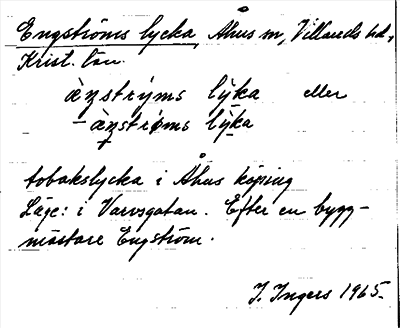 Engströms lycka, Åhus sn, Villands hd.,
Krist. län.
àŋstrýms lỳka eller
– àŋstrøms lỳka
tobakslycka i Åhus köping
Läge: i Varvsgatan. Efter en bygg-
mästare Engström.
I. Ingers 1965.